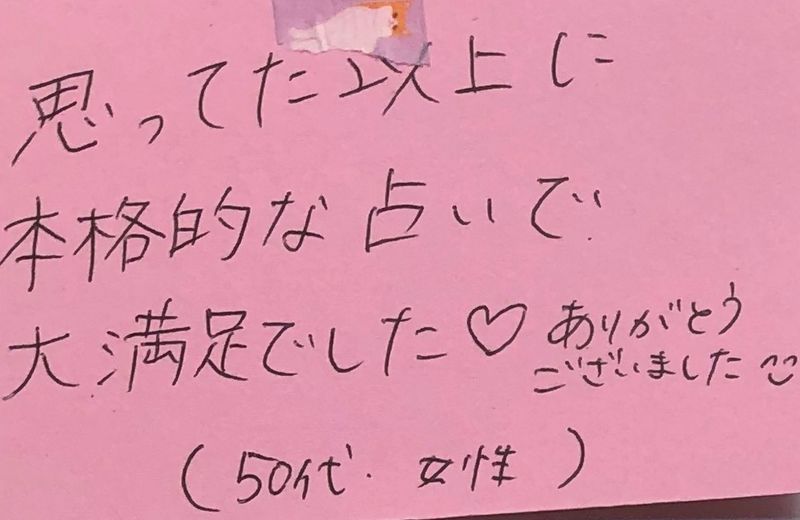 思ってた以上に
本格的な占いで
大満足でした♡ ありがとう
ございました
(50代・女性)